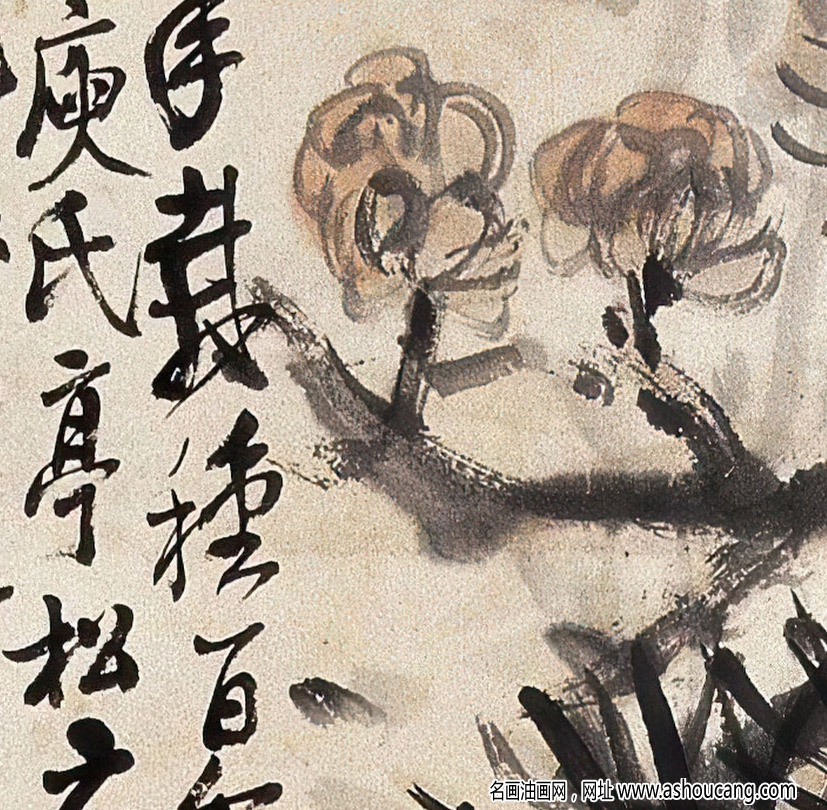 手栽種百
庾氏亭松
名画油画网，网址 www.ashoucang.com